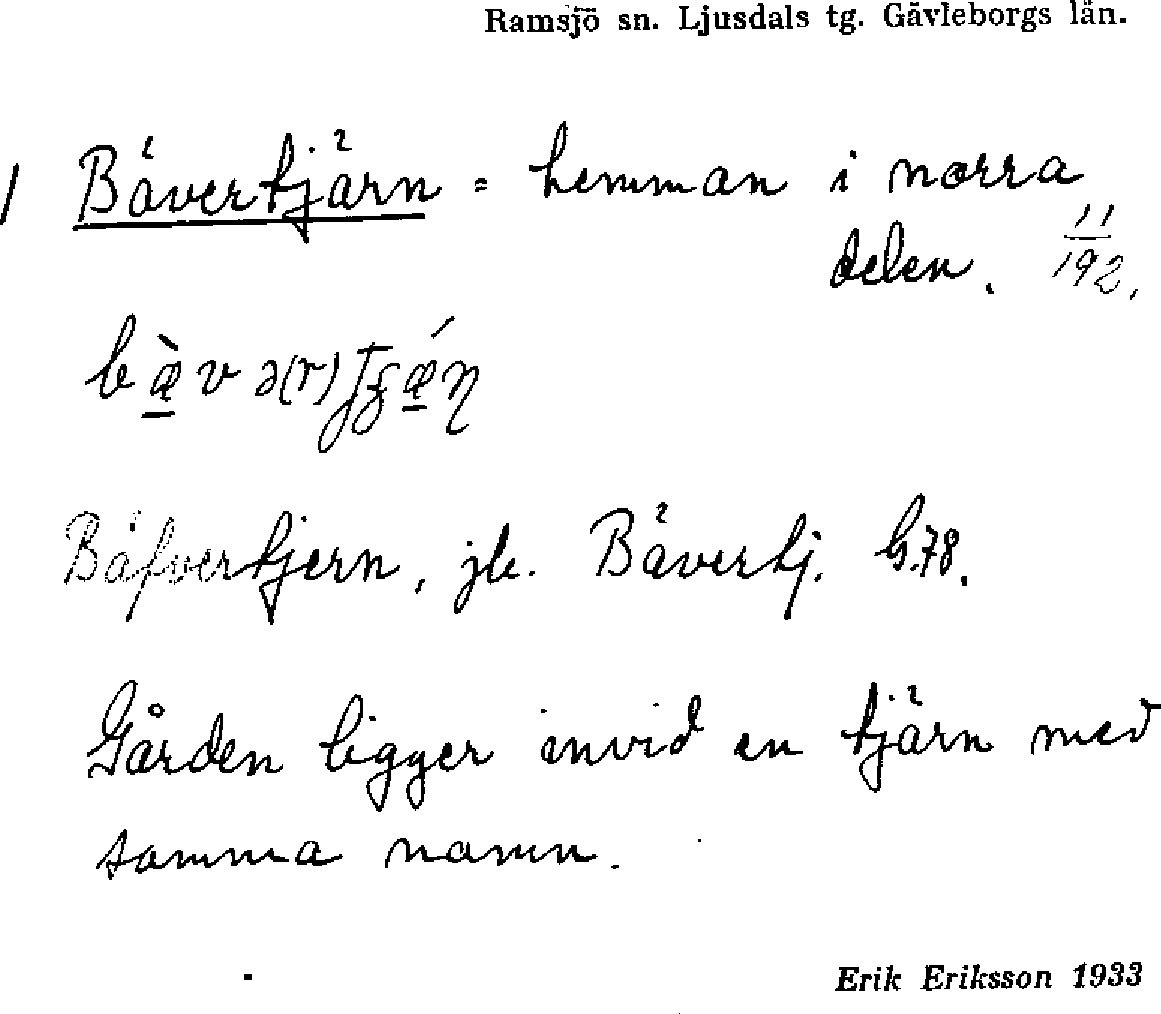 Ramsjö sn. Ljusdals tg. Gävleborgs län.
1 Bävertjärn = hemman i norra
delen. 11/192.
Bäfvertjern, jb. Bävertj. G.78.
Gården ligger invid en tjärn med
samma namn.
Erik Eriksson 1933